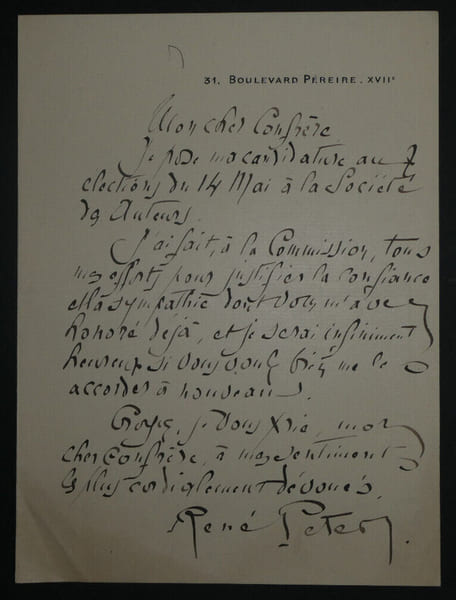 31, BOULEVARD PÉREIRE. XVIIᵉ
Mon cher Confrère
Je pose ma candidature aux
élections du 14 Mai à la Société
des Auteurs.
J'ai fait, à la Commission, tous
mes efforts pour justifier la confiance
et la sympathie dont vous m'avez
honoré déjà, et je serai infiniment
heureux si vous voulez bien me les
accorder à nouveau.
Croyez, je vous prie, mon
cher Confrère, à mes sentiments
les plus cordialement dévoués.
René Peter.